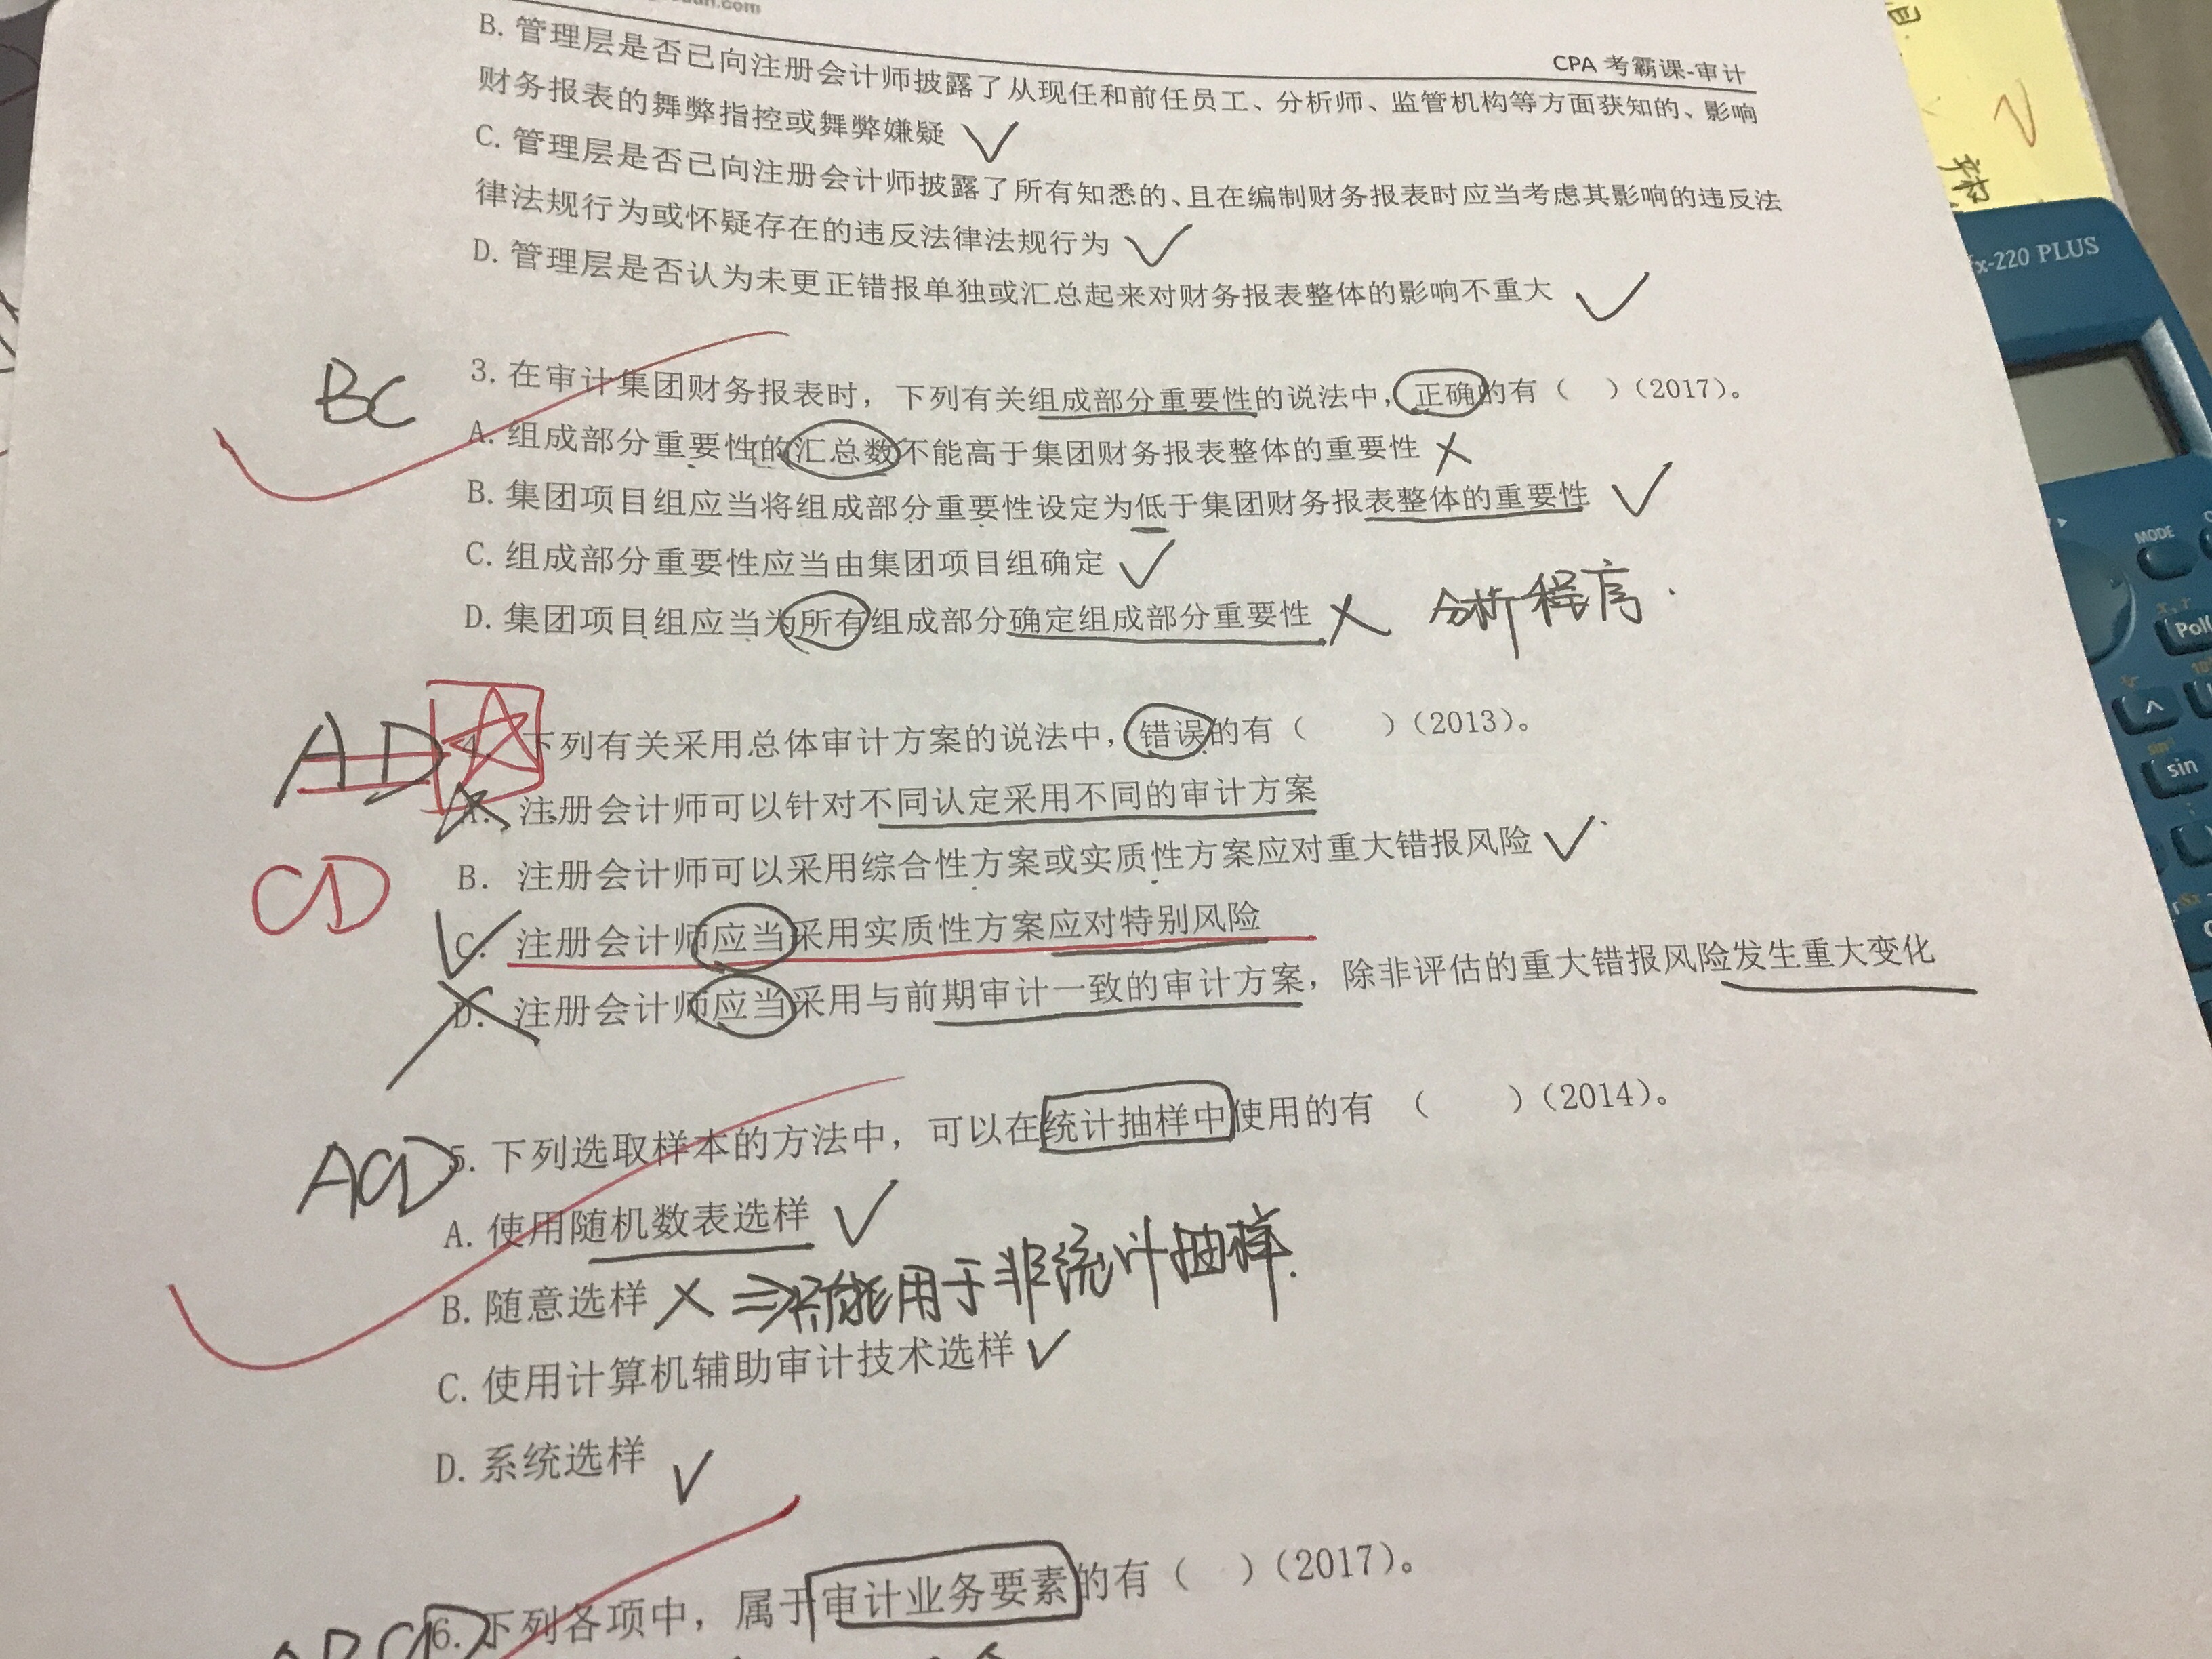 CPA 考霸课-审计
B. 管理层是否已向注册会计师披露了从现任和前任员工、分析师、监管机构等方面获知的、影响
财务报表的舞弊指控或舞弊嫌疑
C. 管理层是否已向注册会计师披露了所有知悉的、且在编制财务报表时应当考虑其影响的违反法
律法规行为或怀疑存在的违反法律法规行为
D. 管理层是否认为未更正错报单独或汇总起来对财务报表整体的影响不重大
BC
3. 在审计集团财务报表时，下列有关组成部分重要性的说法中，正确的有（ ）（2017）。
A. 组成部分重要性的汇总数不能高于集团财务报表整体的重要性
B. 集团项目组应当将组成部分重要性设定为低于集团财务报表整体的重要性
C. 组成部分重要性应当由集团项目组确定
D. 集团项目组应当为所有组成部分确定组成部分重要性 分析程序.
AD
下列有关采用总体审计方案的说法中，错误的有（ ）（2013）。
A. 注册会计师可以针对不同认定采用不同的审计方案
B. 注册会计师可以采用综合性方案或实质性方案应对重大错报风险
CD
C. 注册会计师应当采用实质性方案应对特别风险
D. 注册会计师应当采用与前期审计一致的审计方案，除非评估的重大错报风险发生重大变化
ACD
5. 下列选取样本的方法中，可以在统计抽样中使用的有 （ ）（2014）。
A. 使用随机数表选样
B. 随意选样 ⇒只能用于非统计抽样.
C. 使用计算机辅助审计技术选样
D. 系统选样
6. 下列各项中，属于审计业务要素的有（ ）（2017）。
fx-220 PLUS
MODE
sin